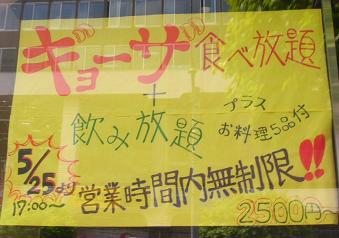 ギョーザ食べ放題
+
飲み放題
プラス
お料理5品付
5/25より
17:00〜
営業時間内無制限!!
2500円〜